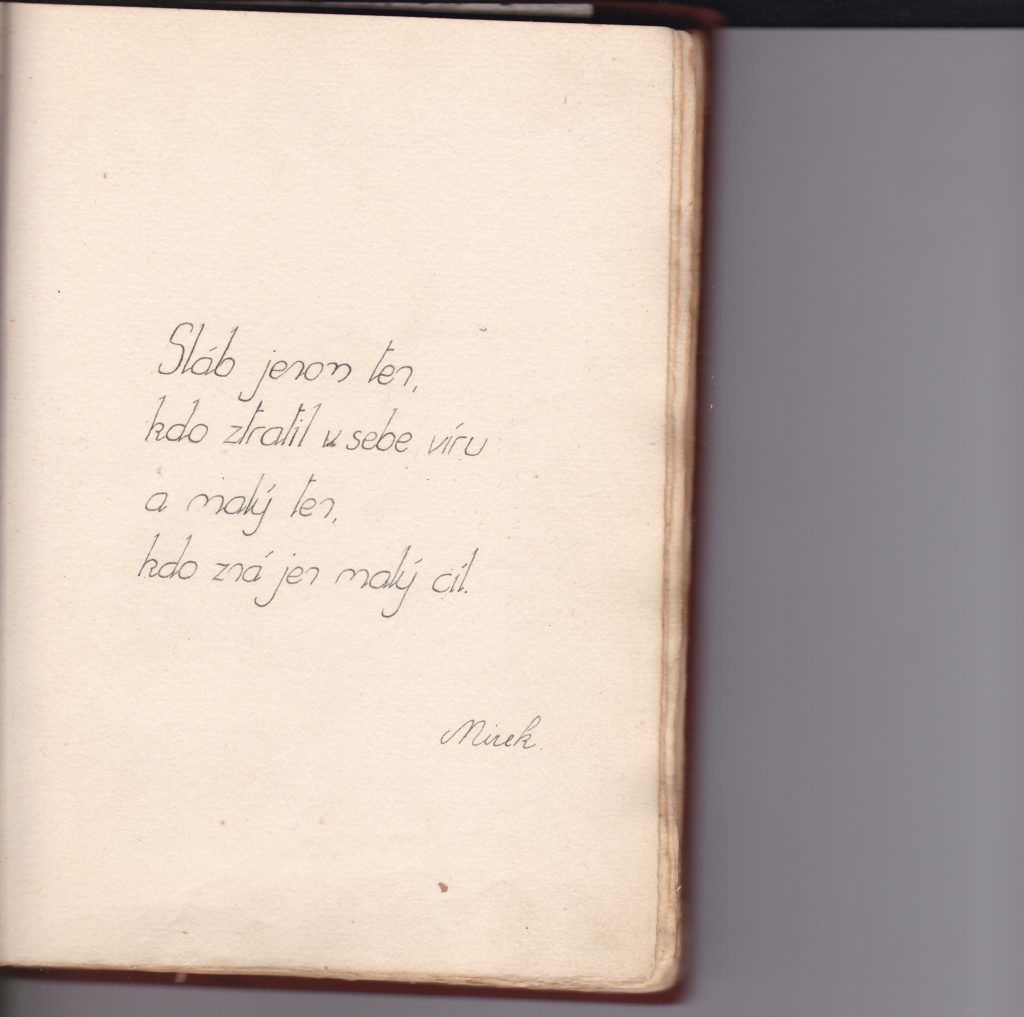 Sláb jenom ten,
kdo ztratil v sebe víru
a malý ten,
kdo zná jen malý cíl.
Mirek.